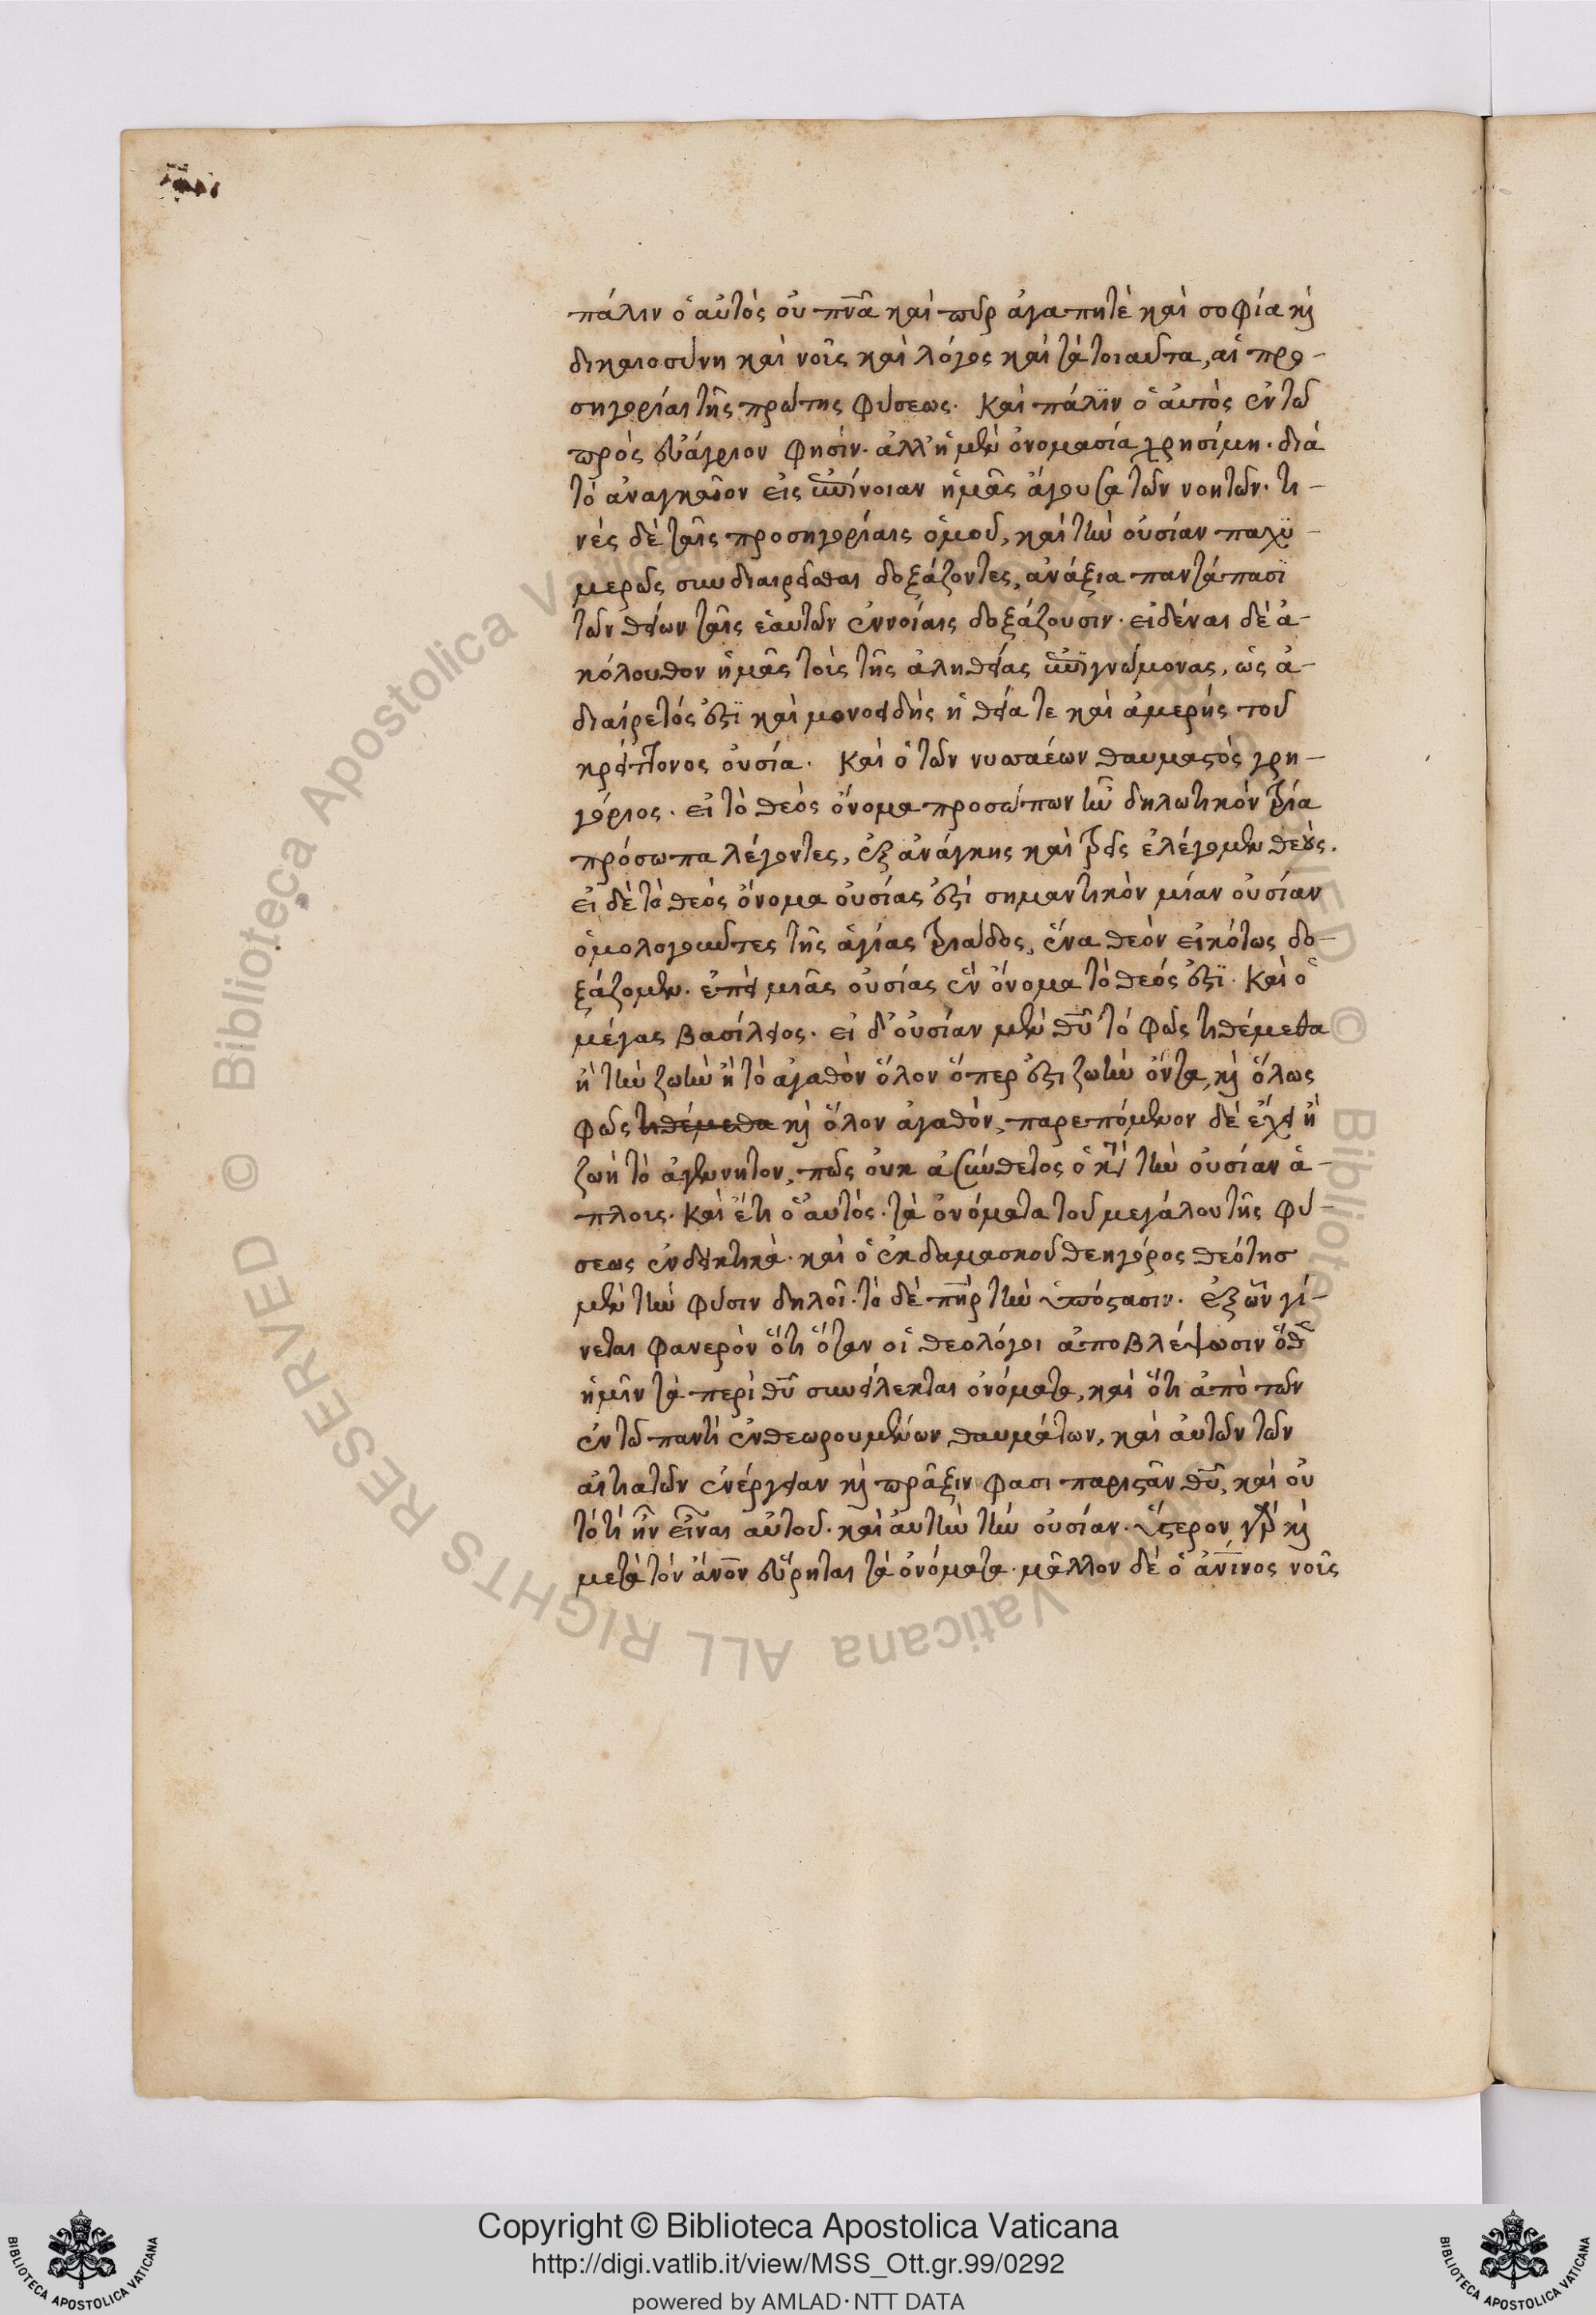 πάλιν ὁ αὐτὸς οὐ πν̅α καὶ πῦρ ἀγαπητὲ καὶ σοφία κ̀
δικαιοσύνη καὶ νοῦς καὶ λόγος καὶ τὰ τοιαῦτα, αἱ προ-
σηγορίαι τῆς πρώτης φύσεως. Καὶ πάλϊν ὁ αὐτὸς ἐν τῶ
πρὸς εὐάγριον φησίν. ἀλλ' ἡ μὲν ὀνομασία χρησίμη. διὰ
τὸ ἀναγκαῖον εἰς ἐπίνοιαν ἡμᾶς ἄγουσα τῶν νοητῶν. τι-
νὲς δὲ ταῖς προσηγορίαις ὁμοῦ, καὶ τὴν οὐσίαν παχϋ-
μερῶς συνδιαιρεῖσθαι δοξάζοντες, ἀνάξια παντάπασϊ
τῶν θείων ταῖς ἑαυτῶν ἐννοίαις δοξάζουσιν. εἰδέναι δὲ ἀ-
κόλουθον ἡμᾶς τοὺς τῆς ἀληθείας ἐπϊγνώμονας, ὡς ἀ-
διαίρετός ἐστϊ καὶ μονοειδὴς ἡ θεία τε καὶ ἀμερὴς τοῦ
κρείττονος οὐσία. Καὶ ὁ τῶν νυσσαέων θαυμαστὸς γρη-
γόριος. εἰ τὸ θεὸς ὄνομα προσώπων ἦν δηλωτικὸν τρία
πρόσωπα λέγοντες, ἐξ ἀνάγκης καὶ τρεῖς ἐλέγομεν θεούς.
εἰ δὲ τὸ θεὸς ὄνομα οὐσίας ἐστὶ σημαντικὸν μίαν οὐσίαν
ὁμολογοῦντες τῆς ἁγίας τριάδος, ἕνα θεὸν εἰκότως δο-
ξάζομεν. ἐπεὶ μιᾶς οὐσίας ἓν ὄνομα τὸ θεός ἐστϊ. Καὶ ὁ
μέγας Βασίλειος. εἰ δ' οὐσίαν μὲν θῦ τὸ φῶς τιθέμεθα
ἢ τὴν ζωὴν ἢ τὸ ἀγαθὸν ὅλον ὅπερ ἐστι ζωὴν ὄντα, κ̀ ὅλως
φῶς τιθέμεθα κ̀ ὅλον ἀγαθόν, παρεπόμενον δὲ ἔχει ἡ
ζωὴ τὸ ἀγέννητον, πῶς οὐκ ἀσύνθετος ὁ κατὰ τὴν οὐσίαν ἁ-
πλοῦς. Καὶ ἔτι ὁ αὐτὸς. τὰ ὀνόματα τοῦ μεγάλου τῆς φύ-
σεως ἐνδεικτικά. καὶ ὁ ἐκ δαμασκοῦ θεηγόρος θεότησ
μὲν τὴν φύσιν δηλοῖ. τὸ δὲ πη̅ρ τὴν ὑπόστασιν. ἐξ ὧν γί-
νεται φανερὸν ὅτι ὅταν οἱ θεολόγοι ἀποβλέψωσιν ὅθ
ἡμῖν τὰ περὶ θῦ συνείλεκται ὀνόματα, καὶ ὅτι ἀπὸ τῶν
ἐν τῶ παντὶ ἐνθεωρουμένων θαυμάτων, καὶ αὐτῶν τῶν
αἰτιατῶν ἐνέργειαν κ̀ πρᾶξιν φασι παριστᾶν θῦ, καὶ οὐ
τὸ τί ἦν εἶναι αὐτοῦ. καὶ αὐτὴν τὴν οὐσίαν. ὕστερον γὰρ κ̀
μετὰ τὸν ἄν̅ον εὕρηται τὰ ὀνόματα. μᾶλλον δὲ ὁ ἀν̅ινος νοῦς
Copyright © Biblioteca Apostolica Vaticana
http://digi.vatlib.it/view/MSS_Ott.gr.99/0292
powered by AMLAD·NTT DATA
BIBLIOTECA APOSTOLICA VATICANA
BIBLIOTECA APOSTOLICA VATICANA
© Biblioteca Apostolica Vaticana ALL RIGHTS RESERVED